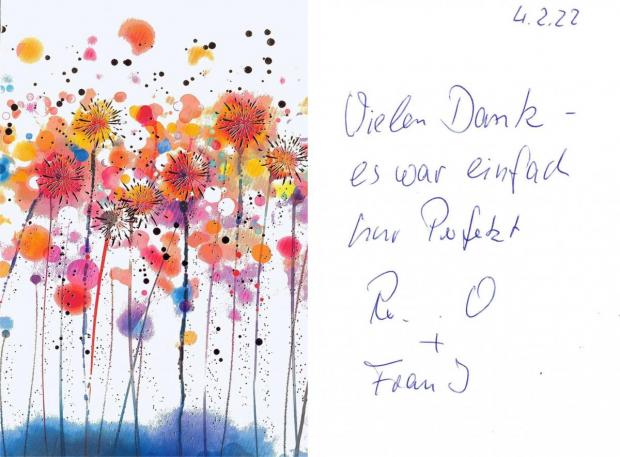 4.2.22
Vielen Dank -
es war einfach
nur Perfekt
Re... O
+
Frau J